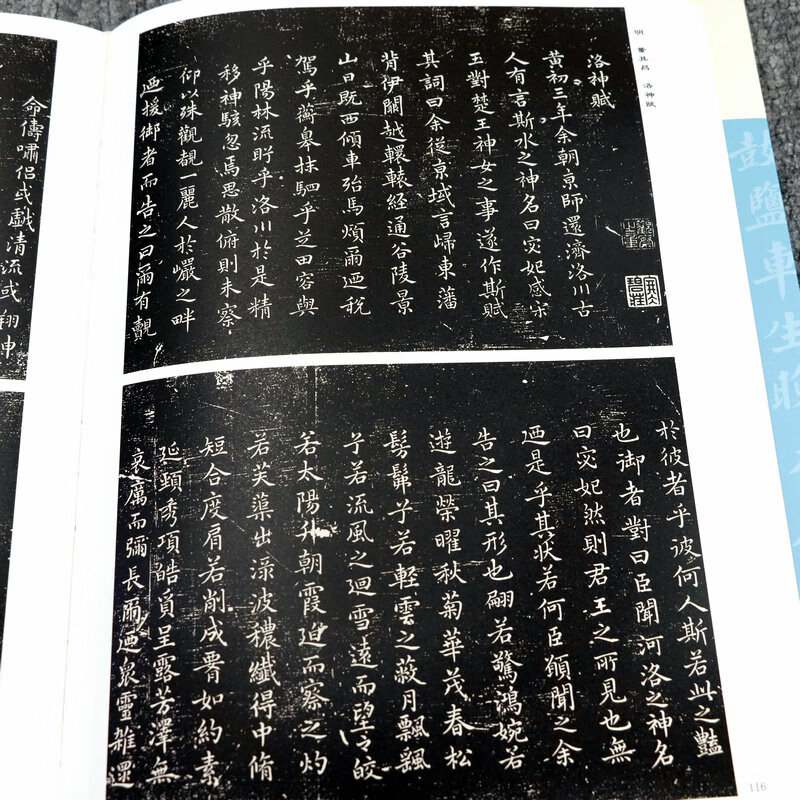 明 董其昌 洛神賦
洛神賦
黃初三年余朝京師還濟洛川古
人有言斯水之神名曰宓妃感宋
玉對楚王神女之事遂作斯賦
其詞曰余從京域言歸東藩
背伊闕越轘轅經通谷陵景
山日既西傾車殆馬煩爾迺稅
駕乎蘅皋秣駟乎芝田容與
乎陽林流眄乎洛川於是精
移神駭忽焉思散俯則未察
仰以殊觀覩一麗人於巖之畔
迺援御者而告之曰爾有覿
於彼者乎彼何人斯若此之豔
也御者對曰臣聞河洛之神名
曰宓妃然則君王之所見也無
迺是乎其狀若何臣願聞之余
告之曰其形也翩若驚鴻婉若
遊龍榮曜秋菊華茂春松
髣髴兮若輕雲之蔽月飄颻
兮若流風之迴雪遠而望之皎
若太陽升朝霞迫而察之灼
若芙蕖出淥波穠纖得中脩
短合度肩若削成腰如約素
延頸秀項皓質呈露芳澤無
哀厲而彌長爾迺衆靈雜遝
116
命儔嘯侶或戲清流或翔神
鹽車生晚